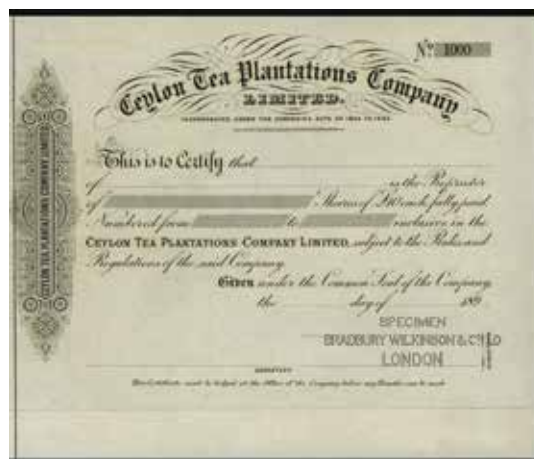 No 1000
Ceylon Tea Plantations Company
LIMITED.
INCORPORATED UNDER THE COMPANIES ACTS OF 1862 TO
This is to Certify that
of is the Proprietor
of Shares of £10 each, fully paid,
Numbered from to inclusive in the
CEYLON TEA PLANTATIONS COMPANY LIMITED, subject to the Rules and
Regulations of the said Company.
Given under the Common Seal of the Company,
the day of 189
SPECIMEN
BRADBURY WILKINSON & Co LD
LONDON
SECRETARY
This Certificate must be lodged at the Office of the Company before any Transfer can be made
CEYLON TEA PLANTATIONS COMPANY LIMITED